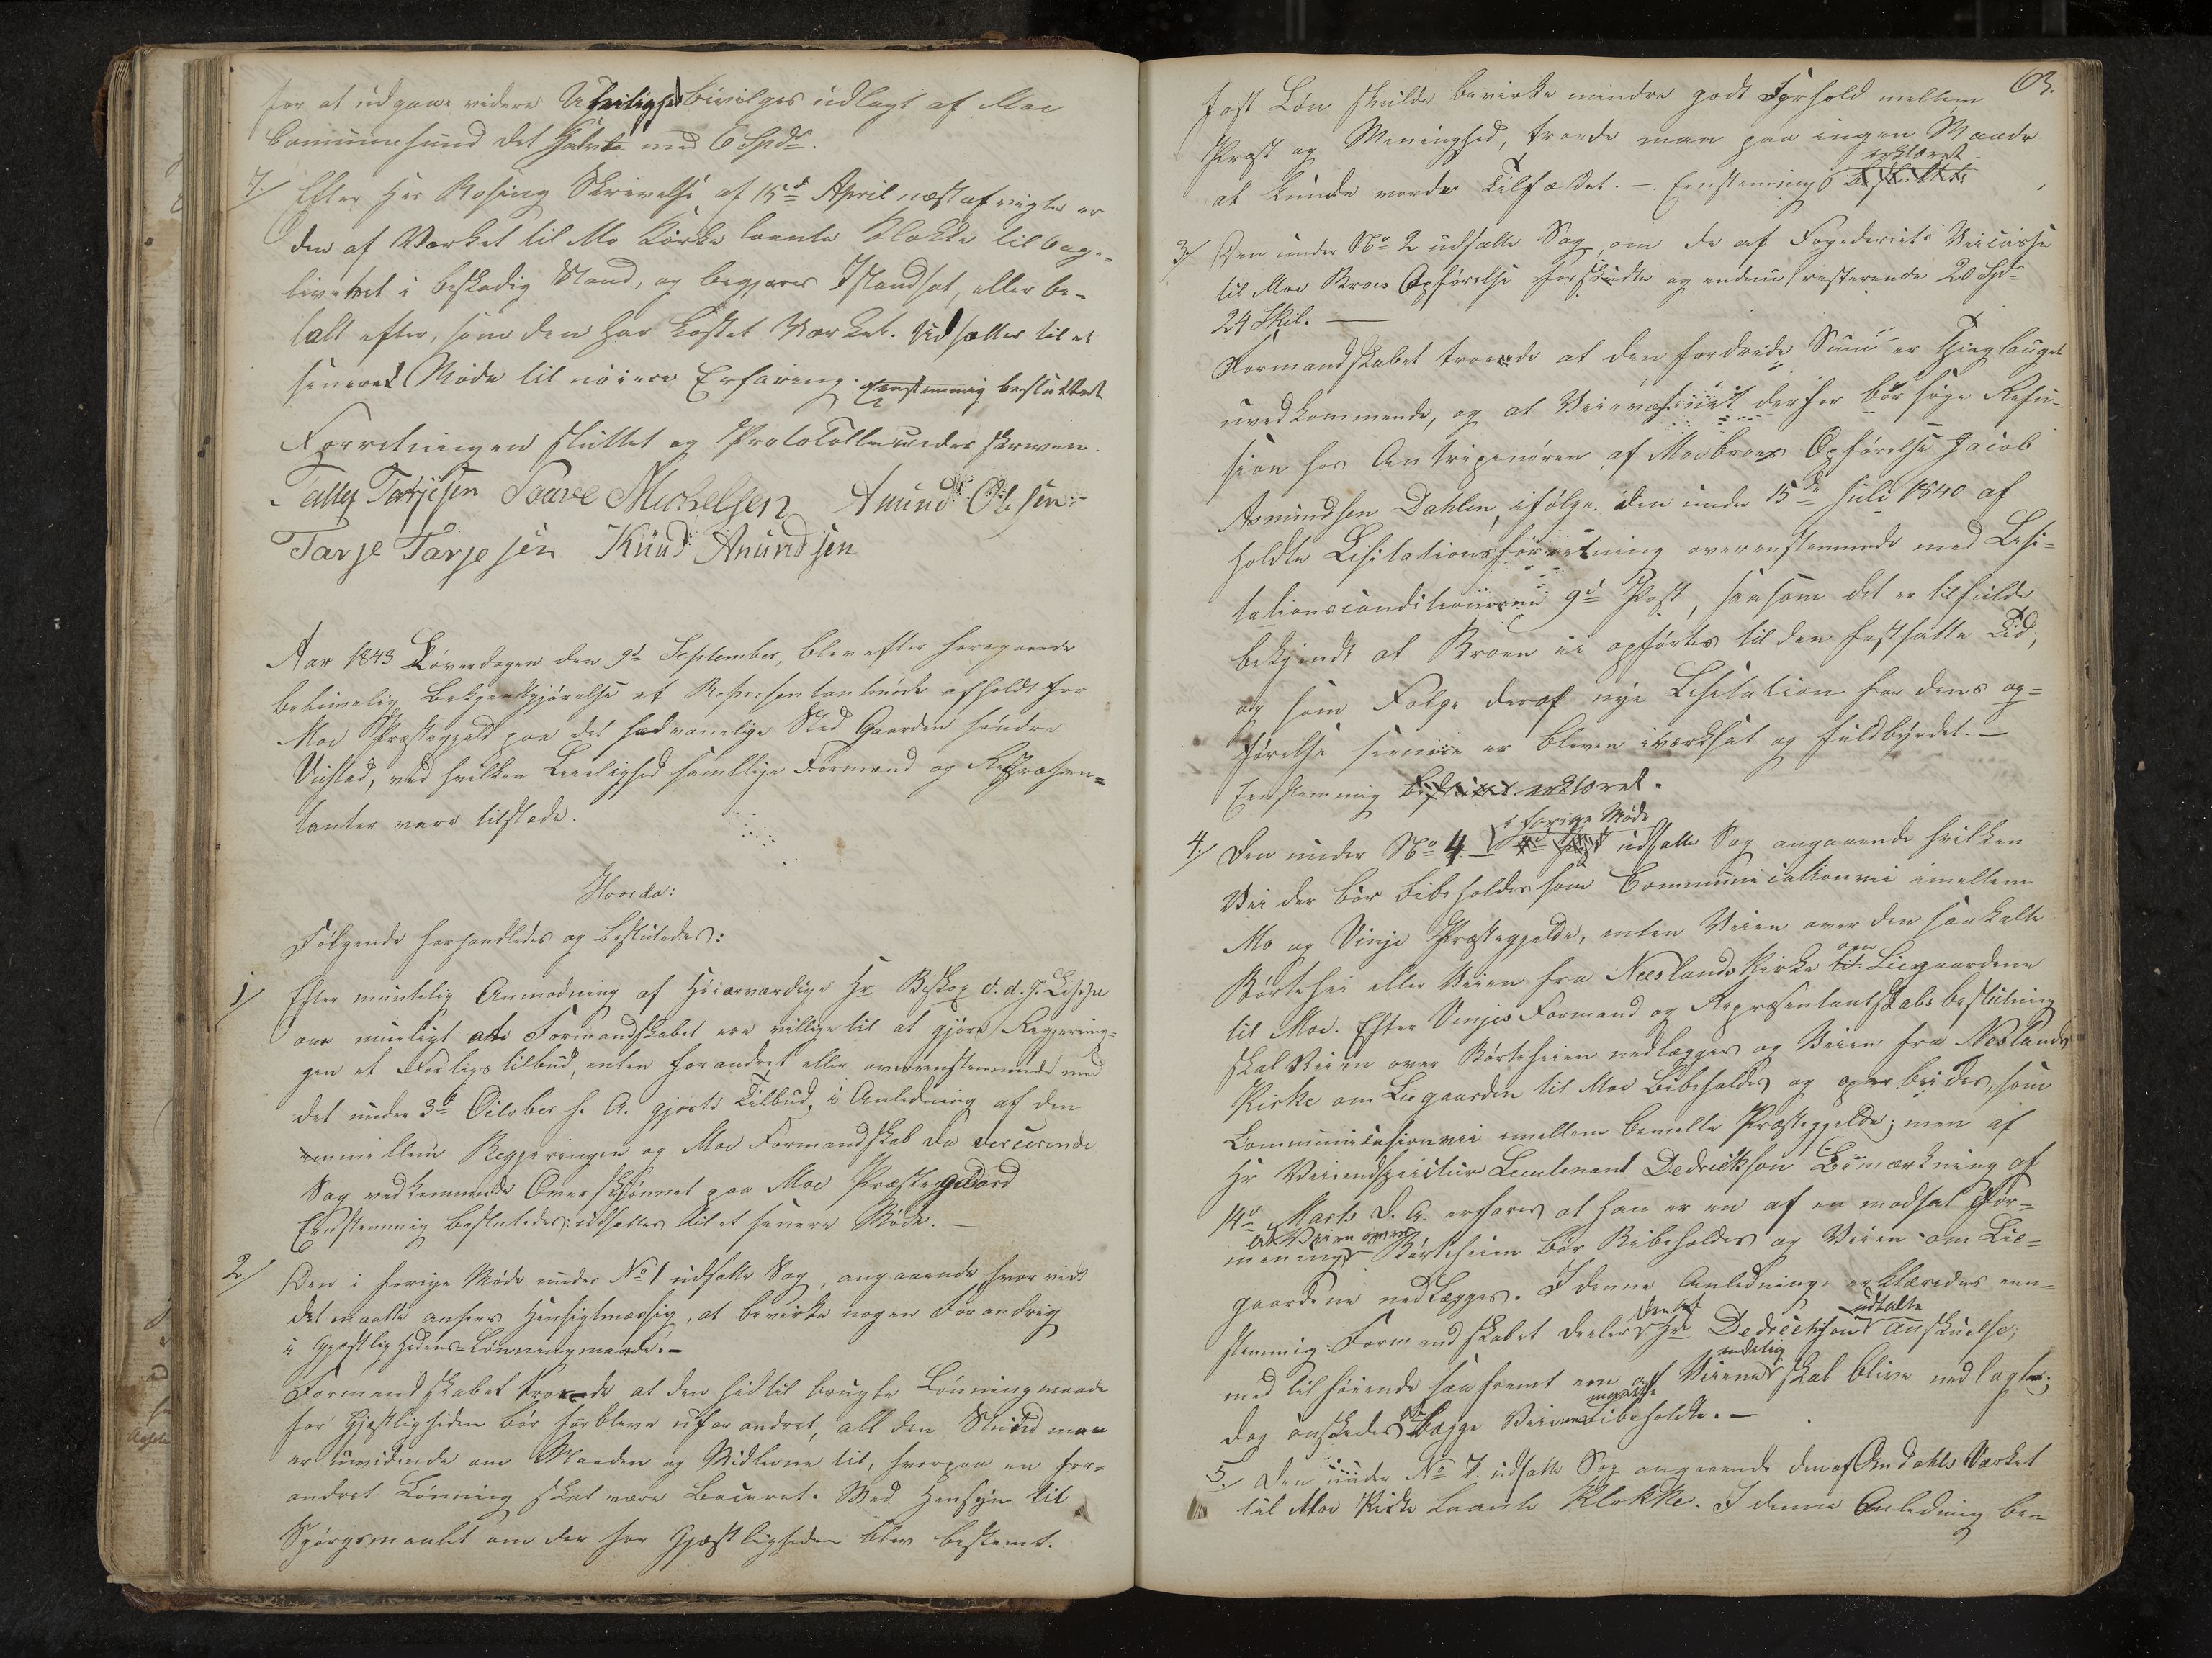 for at udgaae videre Uleilighed bivilges udlagt af Moe
Communesund det halvte med 6 Spd.
7./ Efter Her Rosing Skrivelse af 15d April næstafvigte er
den af Værket til Mo Kirke laante Klokke tilbage-
liveret i beskadig Stand, og begjæres Istandsat, eller be-
talt efter, som den har kostet Værket. Udsættes til et
seneret Møde til nøiere Erfaring. Eenstemmig besluttet
Forretningen sluttet og Protokollen underskreven.
Tallef Tarjesen Sauve Michelsen Anund Olsen
Tarje Tarjesen Knud Anundsen
Aar 1843 Løverdagen den 9d September, blev efter foregaaende
betimelig Bekgendtgjørelse et Represententmøde afholdt for
Moe Præstegjeld paa det sædvanelige Sted Gaarden søndre
Viistad, ved hvilken Leielighed samtlige Formænd og Repræsen=
tanter vare tilstede.
Hvorda:
Følgende forhandledes og besluttedes:
1/ Efter muntelig Anmodning af Høiærværdige Hr Biskop
om mueligt at Formandskabet ere villige til at gjøre Regjering=
gen et Forligs tilbud, enten forandret eller overeenstemmende med
det under 3d h. A. gjorte Tilbud, i Anledning af den
emmellem Regjeringen og Moe Formandskab da
Sag vedkommende Overskjønnet paa Moe Præstegaard
Eenstemmig besluttedes: udsættes til et senere Møde. —
2./ Den i forige Møde under No 1 udsatte Sag, angaaende hvorvidt
det maatte ansees Hensigtmæssig, at bevirke nogen Forandrig
i Gjestlighedens-Lønningmaade. —
Formandskabet troede at den hidtil brugte Lønningmaade
for Gjestligheden bør forbleve uforandret, alt den Stund man
er uvidende om Maaden og Midlerne til, hvorpaa en for=
andret Lønning skal være baceret. Med Hensyn til
Spørgsmaalet om der for Gjestligheden blev bestemt.
63.
fast Løn skulde bevirke mindre godt Forhold mellem
Præst og Meninghed, troede man paa ingen Maade
at kunde vorde Tilfældet. — Eenstemmig erklæret
3/ Den under No 2 udsatte Sag, om de af Fogederiets Veicasse
til Moe Broes Opførelse forskudte og endnu resterende 20 Spd
24 Skil. —
Formandskabet troede at den fordrede Sum er Thinglauget
uvedkommende, og at Veievæsenet derfor bør søge Refu-
sion hos Antripenøren af Moebroes Opførelse Jacob
Asmundsen Dahlen, ifølge den under 15de Juli 1840 af
holdte Lisitationsforretning overenstemmende med Lisi=
tationsconditionerne 9d Post, saasom det er tilfulde
bekjendt at Broen ei opførtes til den fastsatte Tid,
og som Følge deraf nye Lisitation for dens op=
førelse senere er bleven iværksat og fuldbyrdet. —
Eenstemmig erklæret.
4./ Den under No 4 i forige Møde udsatte Sag angaaende hvilken
Vei der bør bibeholdes som Communicationvei imellem
Mo og Vinje Præstegjelde, enten Veien over den saakalte
Børtehei eller Veien fra Neeslands Kirke om Liegaardene
til Moe. Efter Vinjes Formand og Repræsentantskabs beslutning
skal Veien over Børteheien nedlægges og Veien fra Neslands
Kirke om Liegaarden til Moe bibeholdes og oparbeides, som
Communicasionvei imellem bemelte Præstegjelde; men af
Hr Veiendspecteur Leutenant Dedrickson Bemærkning af
14d Marts d. A. erfares at han er en af en modsat For=
mening at Veien over Børteheien bør Bibeholdes og Veien om Lie=
gaardene nedlægges. I denne Anledning erklæredes een=
stemmig: Formandskabet deeler Hr Dedricksons udtalte Anskuelse;
med tilføiende saafremt een af Veiene endelig skal blive nedlagte;
dog ønskedes at begge Veiene bibeholdte. —
5./ Den under No 7. udsatte Sag angaaende den af Omdahls Værket
til Moe Kirke laante Klokke. I denne Anledning be-